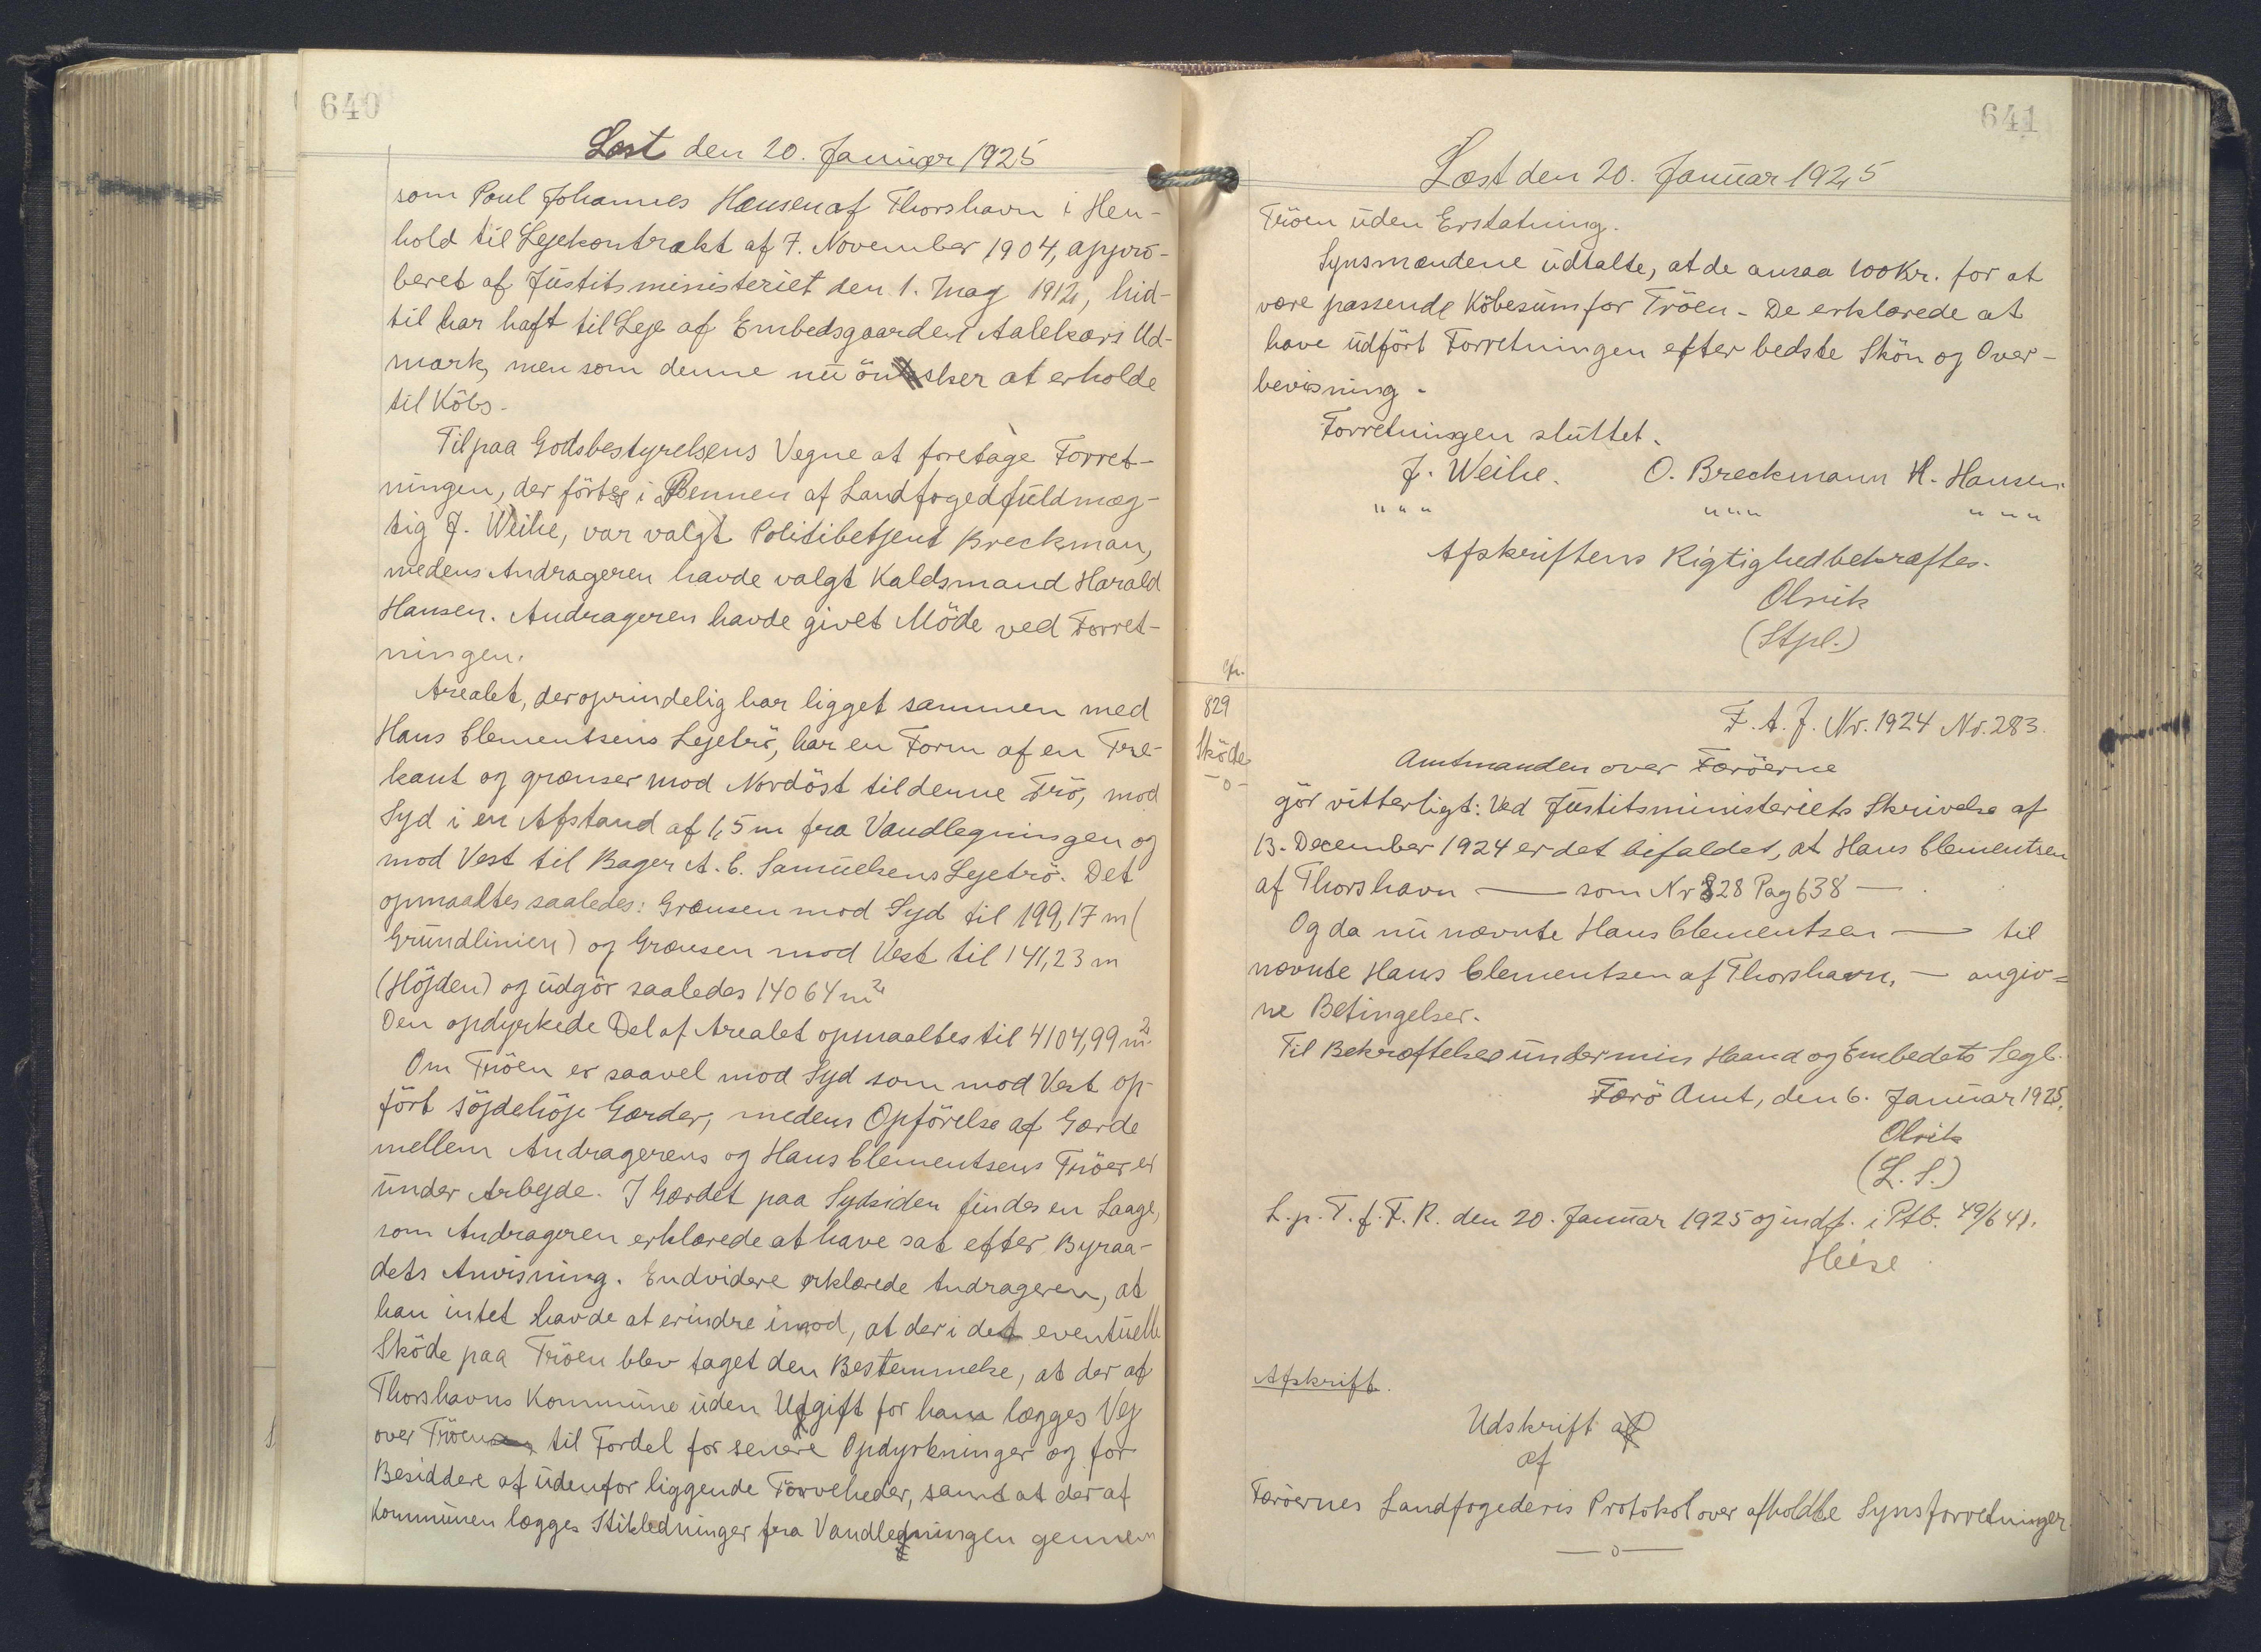 640
Læst den 20. Januar 1925
som Poul Johannes Hansen af Thorshavn i Hen-
hold til Lejekontrakt af 7. November 1904, appro-
beret af Justitsministeriet den 1. Maj 1912, hid-
til har haft til Leje af Embedsgaarden Aalekærs Ud-
mark, men som denne nu önsker at erholde
til Köbs.
Til paa Godsbestyrelsens Vegne at foretage Forret-
ningen, der förtes i Pennen af Landfogedfuldmæg-
tig J. Weihe, var valgt Politibetjent Breckman,
medens Andrageren havde valgt Kaldsmand Harald
Hansen. Andrageren havde givet Möde ved Forret-
ningen.
Arealet, der oprindelig har ligget sammen med
Hans Clementsens Lejetrö, har en Form af en Tre-
kant og grænser mod Nordöst til denne Trö, mod
Syd i en Afstand af 1,5 m fra Vandlegningen og
mod Vest til Bager A. C. Samuelsens Lejetrö. Det
opmaaltes saaledes: Grænsen mod Syd til 199,17 m (
Grundlinien) og Grænsen mod Vest til 141,23 m
(Höjden) og udgör saaledes 14064 m²
Den opdyrkede Del af Arealet opmaaltes til 4104,99 m²
Om Tröen er saavel mod Syd som mod Vest op-
fört söjdehöje Gærder, medens Opförelse af Gærde
mellem Andragerens og Hans Clementsens Tröer er
under Arbejde. I Gærdet paa Sydsiden findes en Laage,
som Andrageren erklærede at have sat efter Byraa-
dets Anvisning. Endvidere erklærede Andrageren, at
han intet havde at erindre imod, at der i det eventuelle
Sköde paa Tröen blev taget den Bestemmelse, at der af
Thorshavns Kommune uden Udgift for ham lægges Vej
over Tröen til Fordel for senere Opdyrkninger og for
Besiddere af udenfor liggende Törveheder, samt at der af
Kommunen lægges Stikledninger fra Vandledningen gennem
641
Læst den 20. Januar 1925
Tröen uden Erstatning.
Synsmændene udtalte, at de ansaa 100 Kr. for at
være passende Köbesum for Tröen - De erklærede at
have udfört Forretningen efter bedste Skön og Over-
bevisning.
Forretningen sluttet.
J. Weihe. O. Breckmann H. Hansen.
" " " " " " " " "
Afskriftens Rigtighed bekræftes.
Olrik
(Stpl.)
829
Sköde
- o -
F. A. J. Nr. 1924 Nr. 283.
Amtmanden over Færöerne
gör vitterligt: Ved Justitsministeriets Skrivelse af
13. December 1924 er det bifaldet, at Hans Clementsen
af Thorshavn — som Nr 828 Pag 638 — .
Og da nu nævnte Hans Clementsen — til
nævnte Hans Clementsen af Thorshavn, — angiv=
ne Betingelser.
Til Bekræftelse under min Haand og Embedets Segl.
Færö Amt, den 6. Januar 1925.
Olrik
(L. S.)
L. p. T. f. F. R. den 20. Januar 1925 og indf. i Ptb. 49/641.
Heise
Afskrift.
Udskrift
af
Færöernes Landfogederis Protokol over afholdte Synsforretninger.
— o —